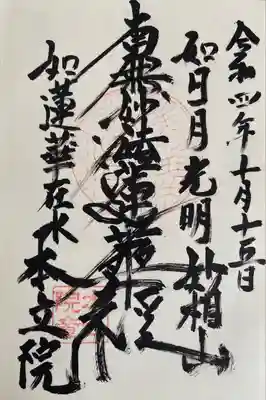 令和四年十月十五日
如日月光明
松相山
南無妙法蓮華経
如蓮華在水
本立院